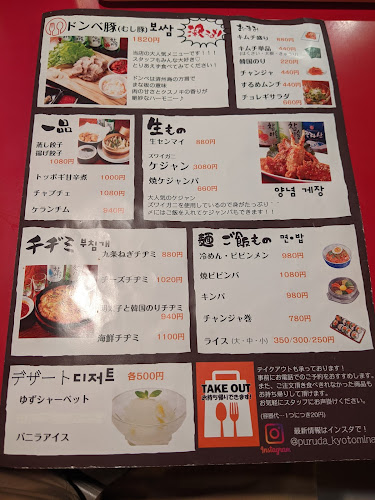 ドンベ豚(むし豚)보쌈
1820円
当店の大人気メニューです!!!
スタッフもみんな大好き♡
とりあえず食べてみてください!
ドンベは済州島の方言で
まな板の意味
肉の甘さとクスノキの香りが
絶妙なハーモニー!
キムチ盛り 880円
キムチ単品 440円
韓国のり 220円
チャンジャ 440円
するめムンチ 440円
チョレギサラダ
600円
一品
蒸し餃子
揚げ餃子
1080円
トッポギ甘辛煮 1000円
チャプチェ 1080円
ケランチム 940円
生もの
生センマイ 880円
ズワイガニ
ケジャン 3080円
焼ケジャンバ
660円
양념 게장
大人気のケジャン
ズワイガニを使用しているので身がたっぷり
メにはご飯を入れてケジャンバもできます!!
チヂミ 부침개
九条ねぎチヂミ 880円
チーズチヂミ 1020円
明太子と韓国のりチヂミ
940円
海鮮チヂミ 1100円
麺 ご飯もの 면・밥
冷めん・ビビンメン 980円
焼ビビンバ 1080円
キンパ 980円
チャンジャ巻 780円
ライス(大・中・小) 350/300/250円
デザート 디저트 各500円
ゆずシャーベット
バニラアイス
TAKE OUT
お持ち帰りできます!
テイクアウトも承っております!
事前にお電話でのご予約をおすすめします。
また、ご注文頂き食べきれなかった商品も
お持ち帰りして頂けます。
お気軽にスタッフにお声掛けください。
(容器代一1つにつき20円)
最新情報はインスタで!
@puruda_kyotomina
Instagram